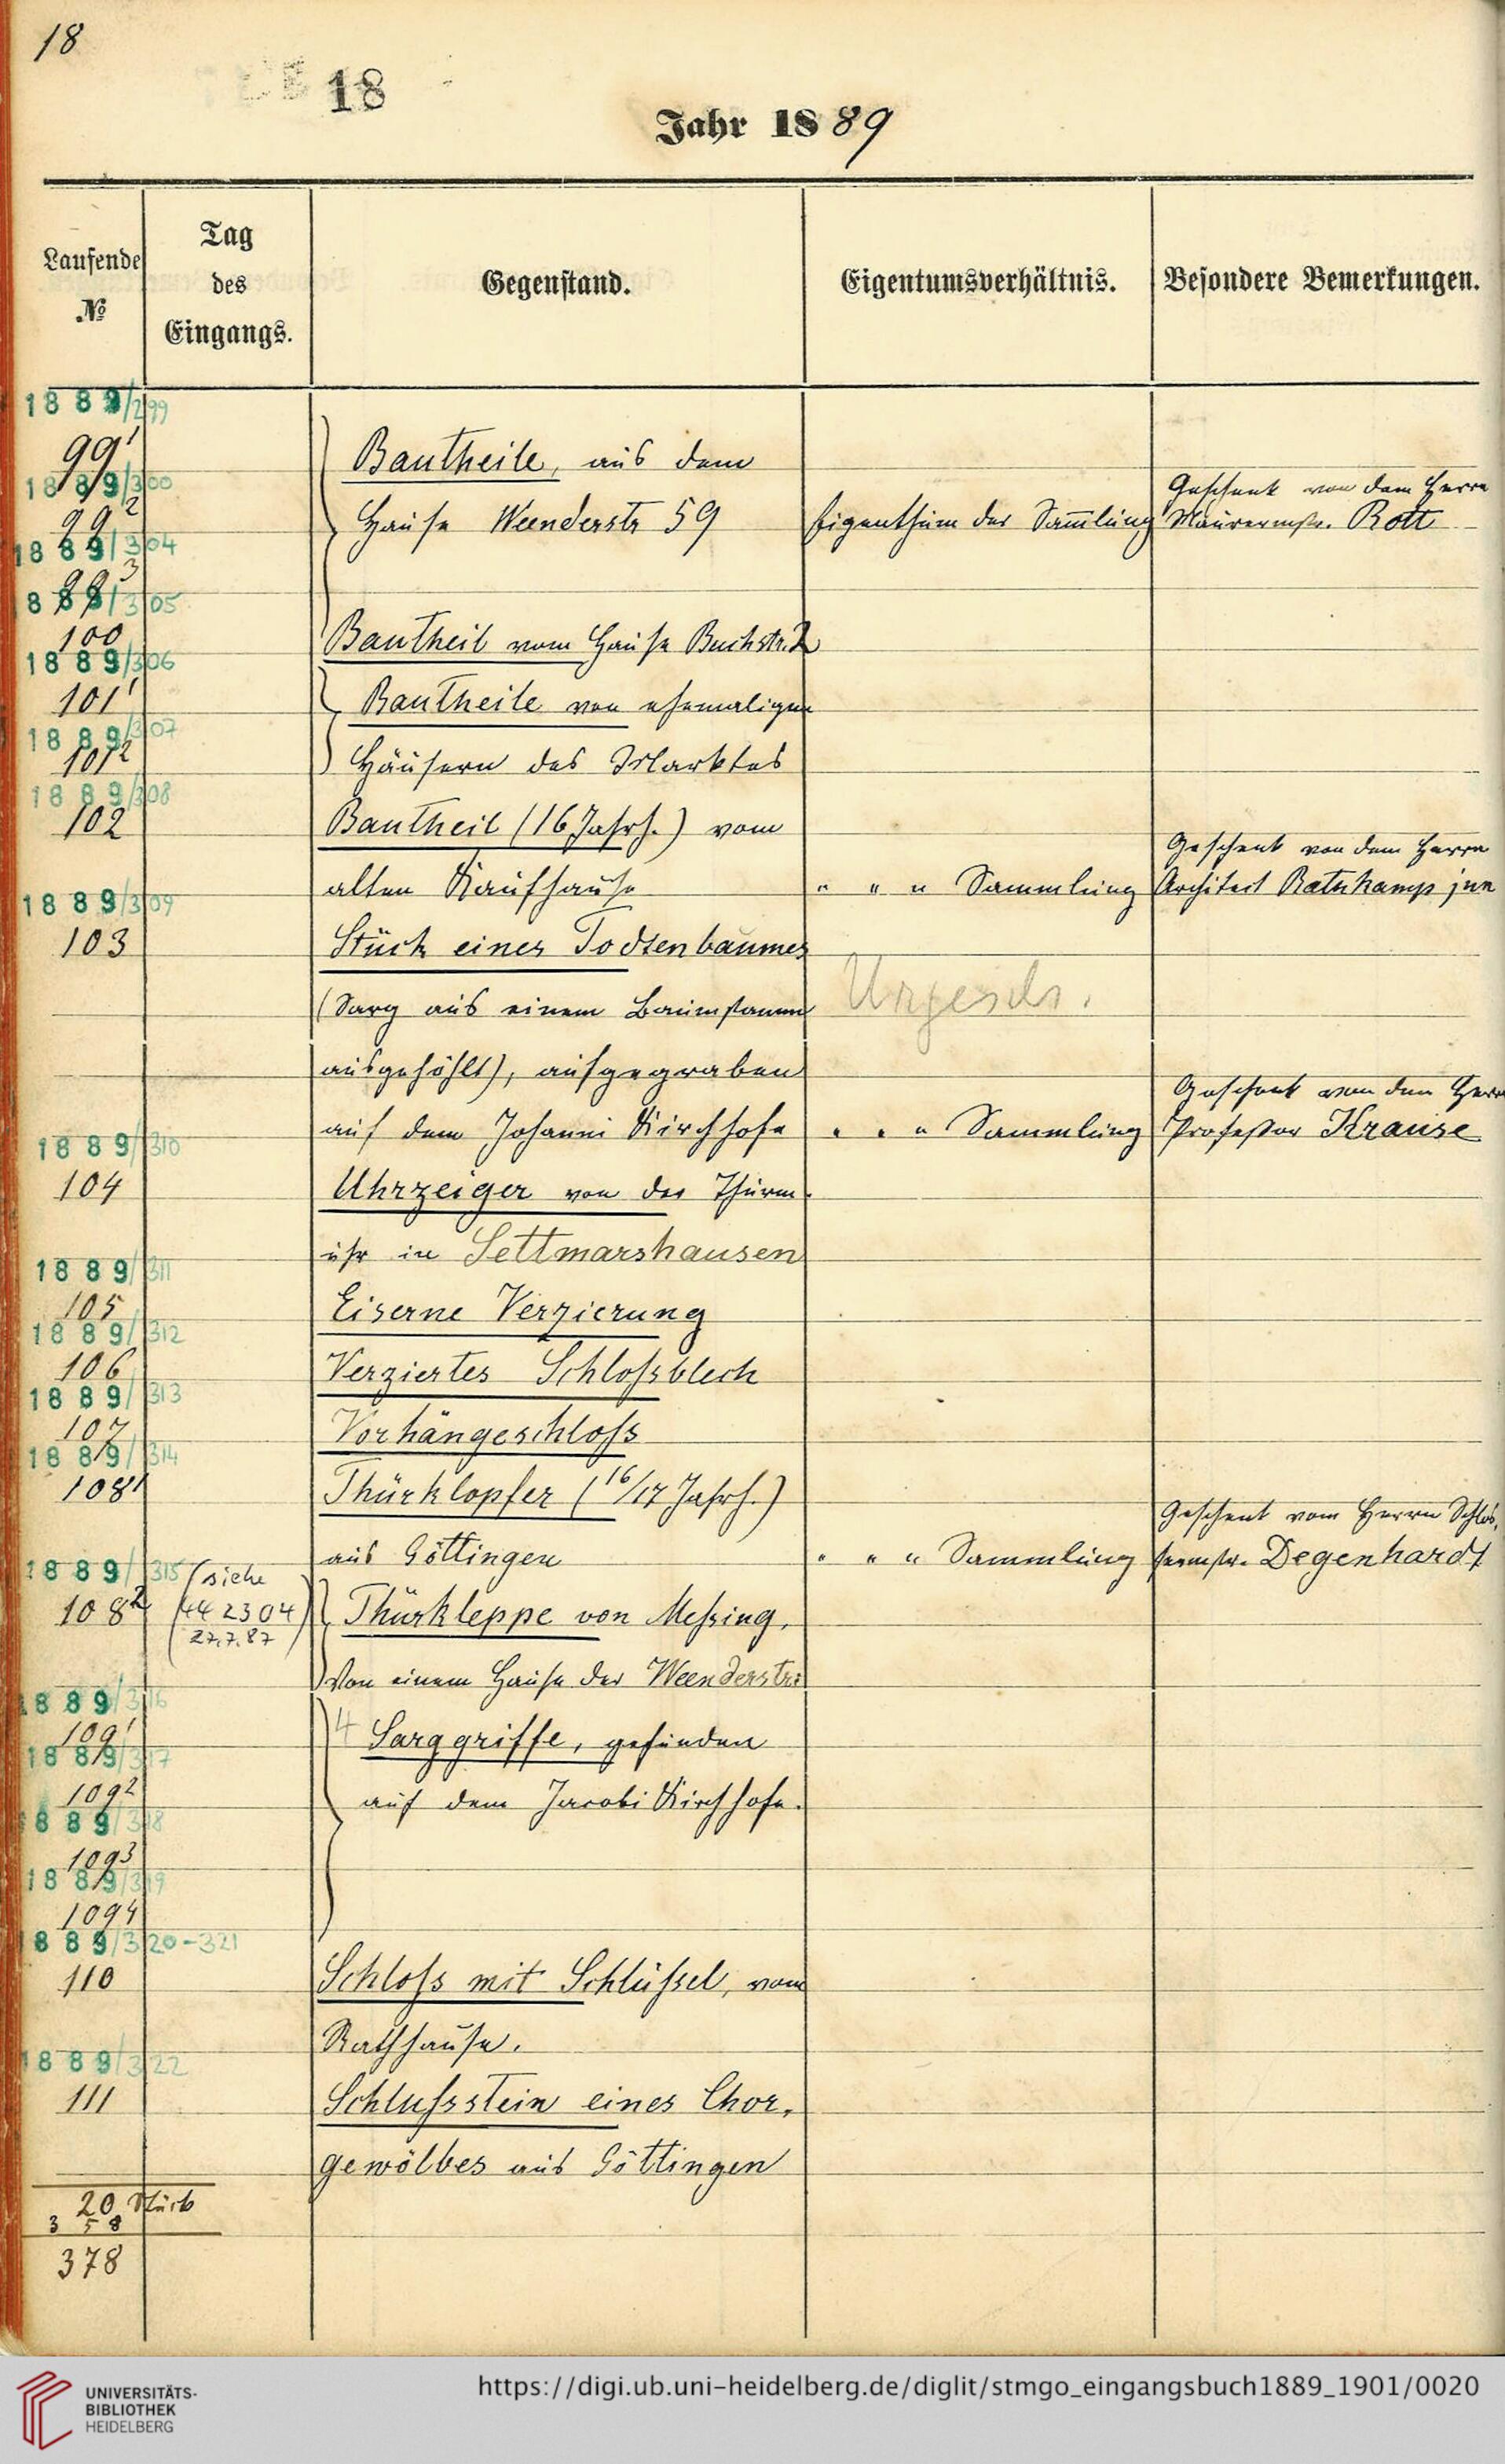 18
18
Jahr 1889
Laufende
No
Tag
des
Eingangs.
Gegenstand.
Eigentumsverhältnis.
Besondere Bemerkungen.
1889/299
99¹ Bautheile, aus dem
1889/300 Geschenk von dem Herrn
99² Hause Weenderstr 59 Eigenthum der Sam̅lung Maurermstr. Rott
1889/304
99³
1889/305
100 Bautheil vom Hause Buchstr. 2
1889/306
101¹ Bautheile von ehemaligen
1889/307
101² Häusern des Marktes
1889/308
102 Bautheil (16 Jahrh.) vom
Geschenk von dem Herrn
alten Kaufhause " " " Sammlung Architect Rathkamp jun
1889/309
103 Stück eines Todtenbaumes
(Sarg aus einem Baumstamm Urgesch.
ausgehöhlt), aufgegraben
Geschenk von dem Herrn
auf dem Johanni Kirchhofe " " " Sammlung Professor Krause
1889/310
104 Uhrzeiger von der Thurm-
uhr in Settmarshausen
1889/311
105 Eiserne Verzierung
1889/312
106 Verziertes Schlossblech
1889/313
107 Vorhängeschloss
1889/314
108¹ Thürklopfer (16/17 Jahrh.)
Geschenk vom Herrn Schlos-
aus Göttingen " " " Sammlung sermstr. Degenhardt
1889/315 (siehe
108² 442304 Thürkleppe von Messing,
27.7.87)
Von einem Hause der Weenderstr:
1889/316
109¹ 4 Sarggriffe, gefunden
1889/317
109² auf dem Jacobi Kirchhofe.
1889/318
109³
1889/319
109⁴
1889/320-321
110 Schloss mit Schlüssel, vom
Rathhause.
1889/322
111 Schlussstein eines Chor-
gewölbes aus Göttingen
20 Stück
358
378
UNIVERSITÄTS-
BIBLIOTHEK
HEIDELBERG
https://digi.ub.uni-heidelberg.de/diglit/stmgo_eingangsbuch1889_1901/0020